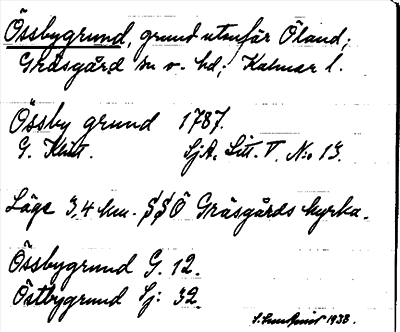 Össbygrund, grund utanför Öland;
Gräsgård sn o. hd; Kalmar l.
Össby grund 1787.
G. Klint. SjA. Litt. V. No 13.
Läge 3,4 km. SSÖ Gräsgårds kyrka.
Össbygrund G. 12.
Östbygrund Sj: 32.
1938